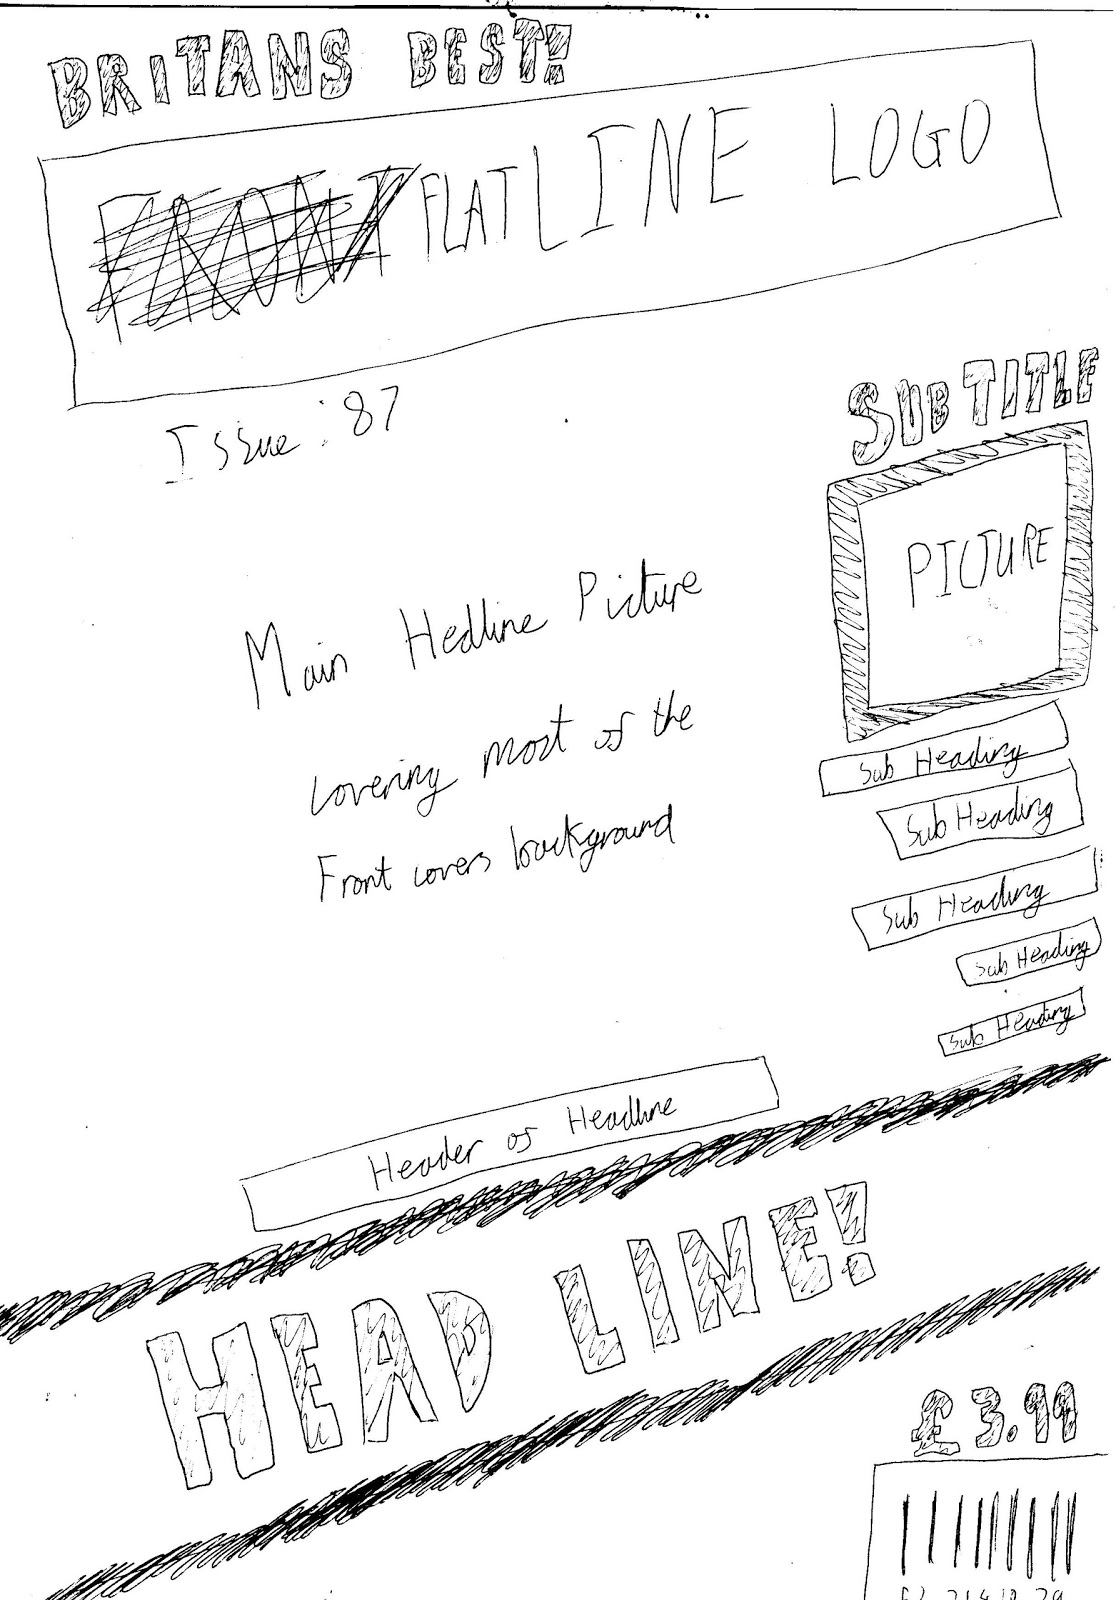 BRITANS BEST!
FRONT FLATLINE LOGO
Issue: 87
SUB TITLE
PICTURE
Main Hedline Picture
covering most of the
Front covers background
Sub Heading
Sub Heading
Sub Heading
Sub Heading
Sub Heading
Header of Headline
HEAD LINE!
£3.99